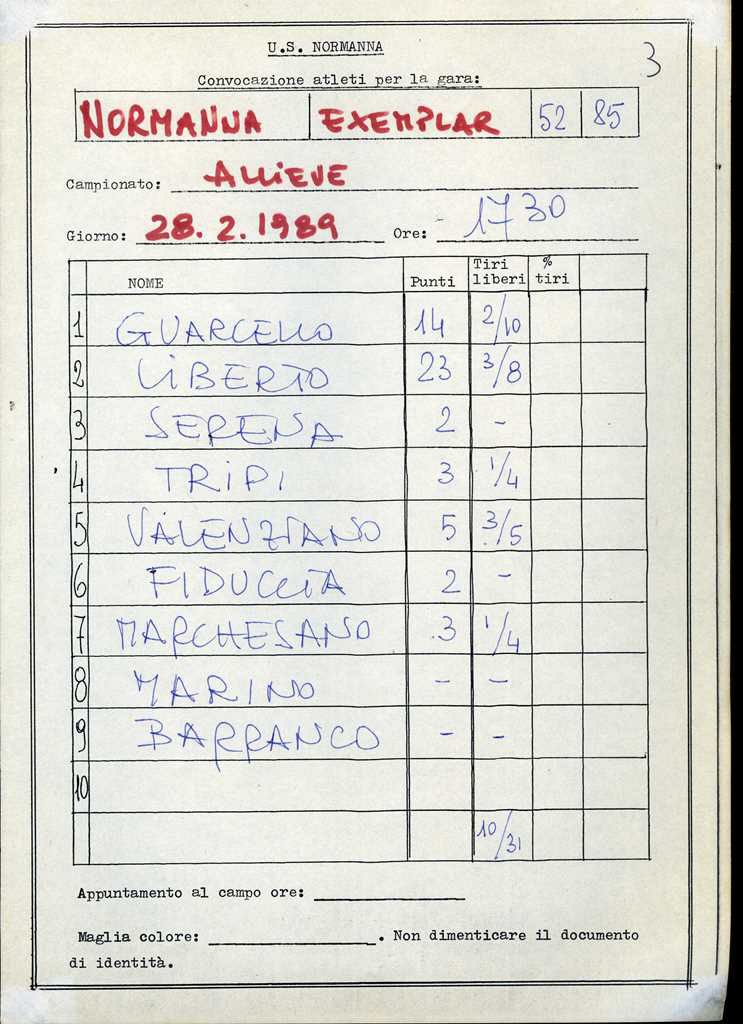 U.S. NORMANNA
3
Convocazione atleti per la gara:
NORMANNA EXEMPLAR 52 85
Campionato: ALLIEVE
Giorno: 28.2.1989 Ore: 17 30
NOME Punti Tiri liberi % tiri
1 GUARCELLO 14 2/10
2 LIBERTO 23 3/8
3 SERENA 2 -
4 TRIPI 3 1/4
5 VALENZIANO 5 3/5
6 FIDUCCIA 2 -
7 MARCHESANO 3 1/4
8 MARINO - -
9 BARRANCO - -
10
10/31
Appuntamento al campo ore:
Maglia colore: . Non dimenticare il documento
di identità.